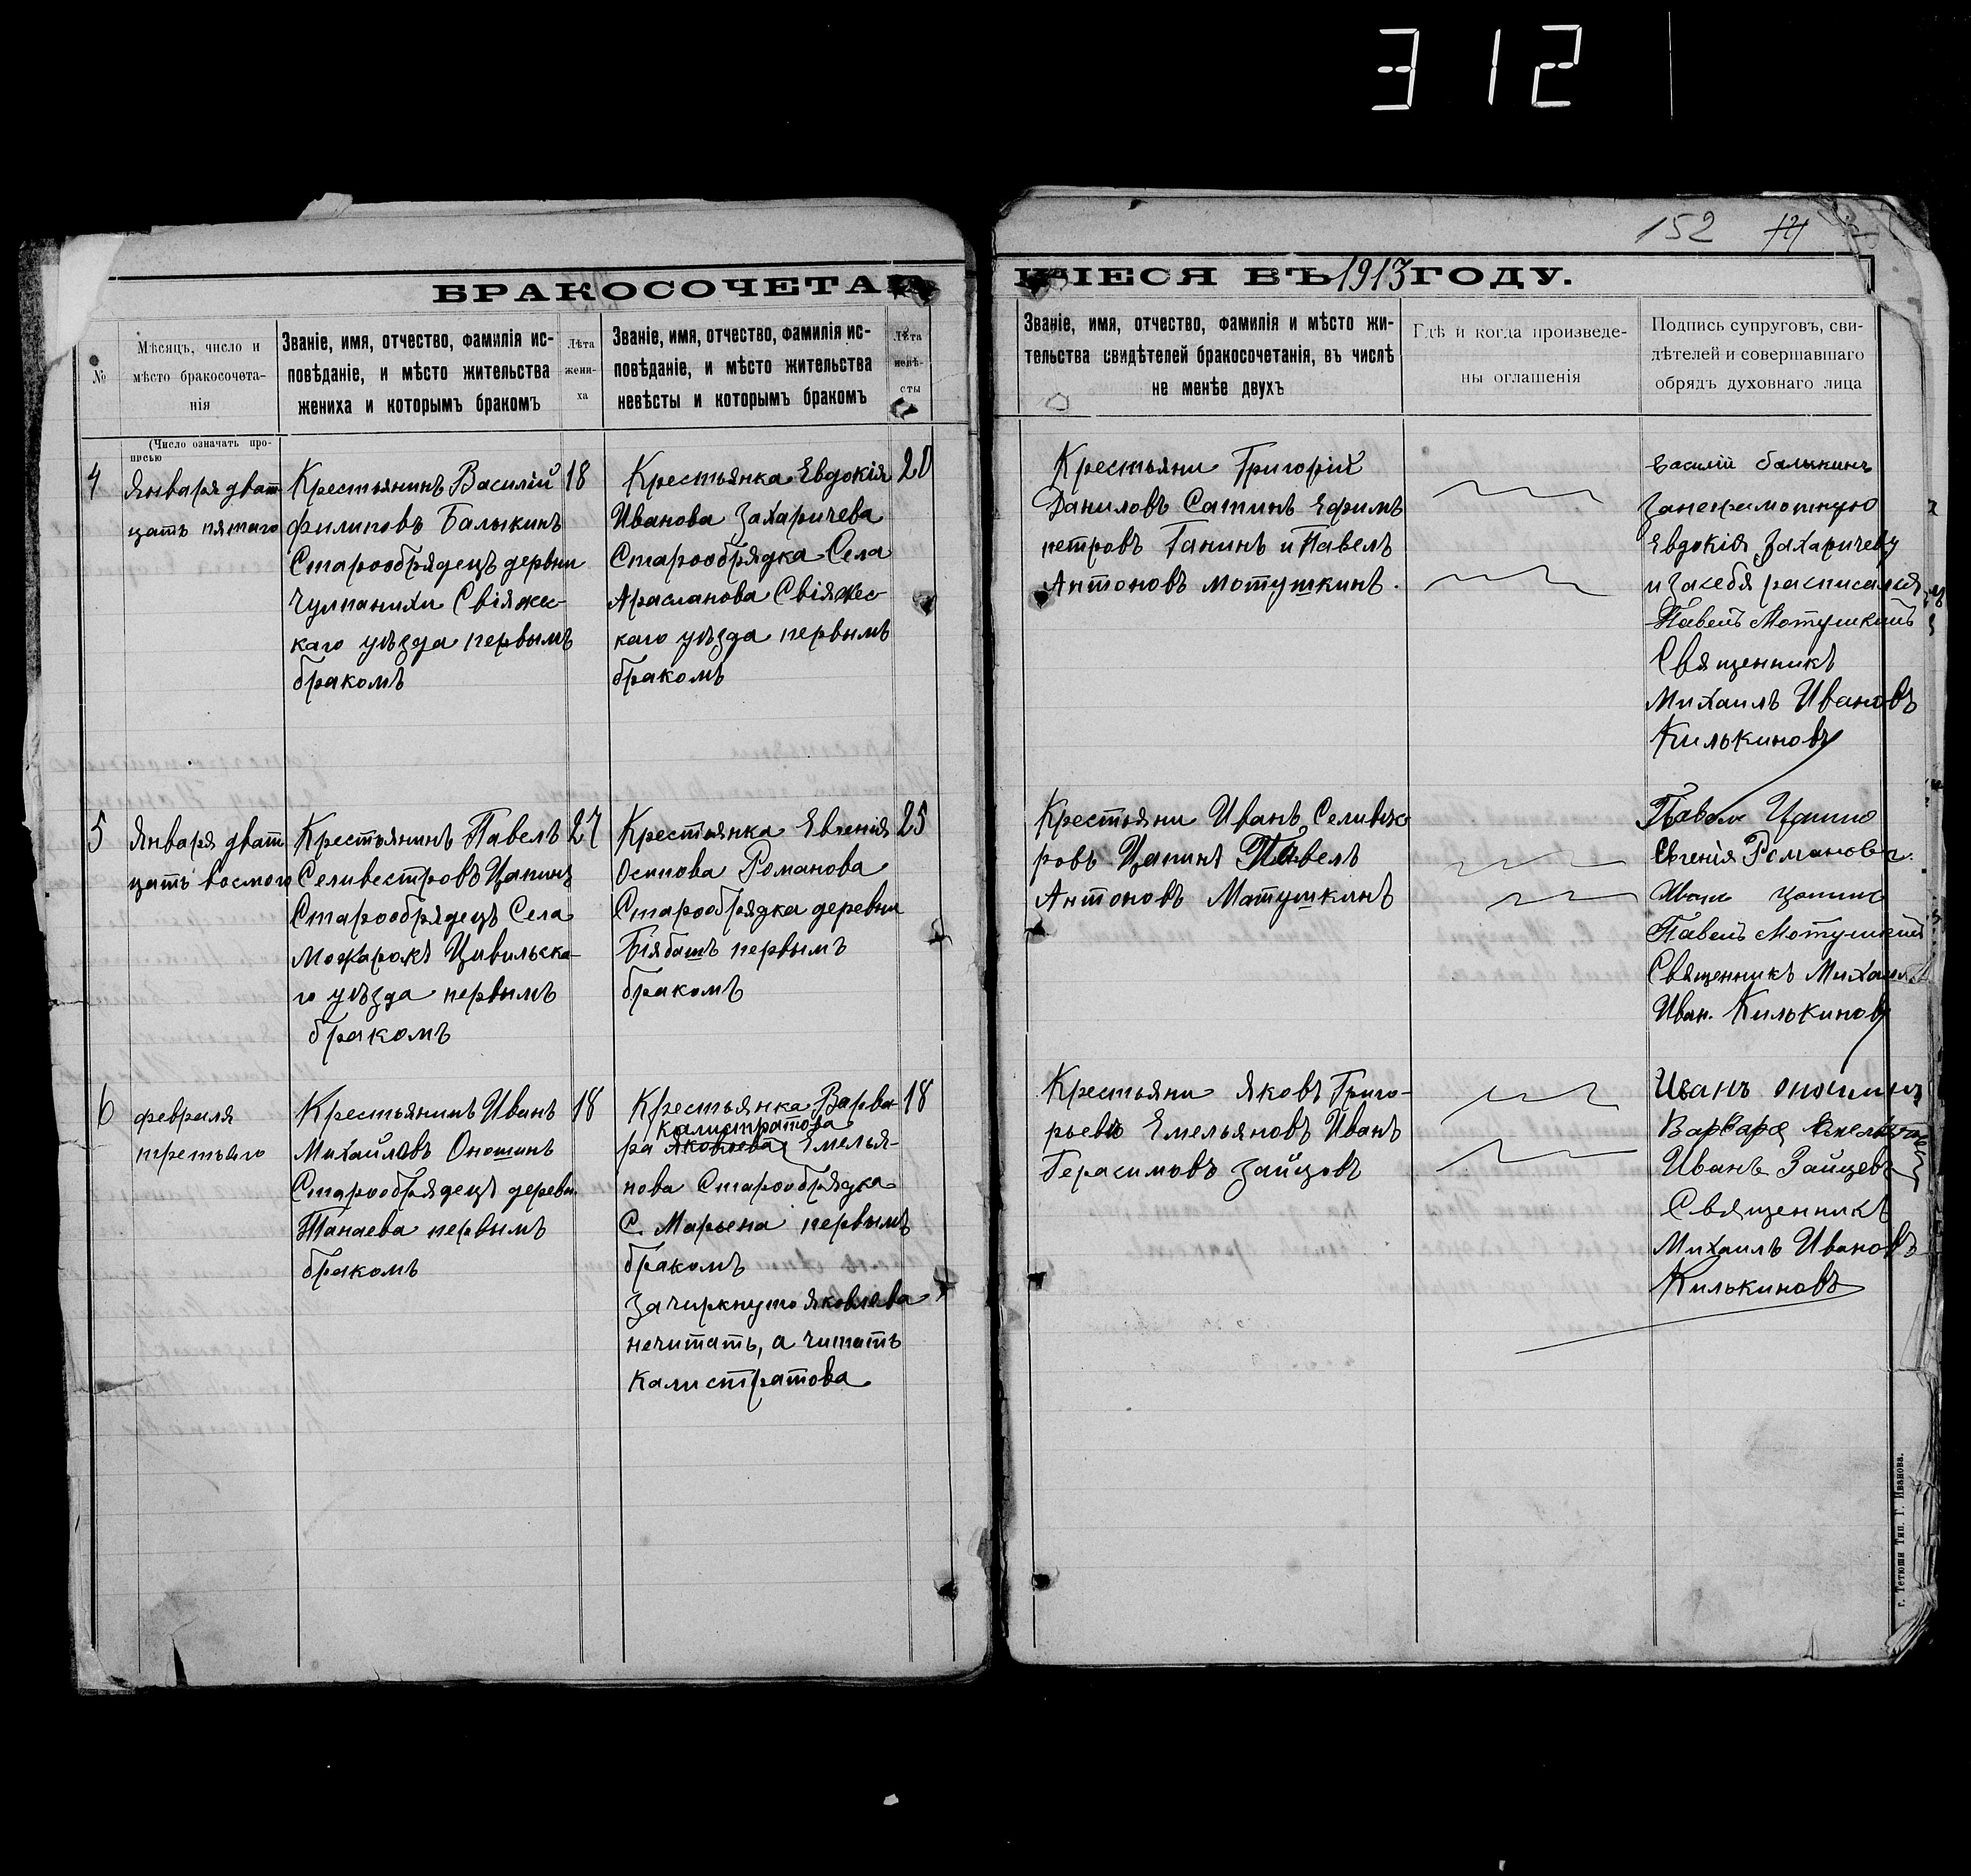 312
152
БРАКОСОЧЕТАВ
ШІЕСЯ ВЪ 1913 ГОДУ.
№
Мѣсяцъ, число и
мѣсто бракосочета-
нія
Званіе, имя, отчество, фамилія ис-
повѣданіе, и мѣсто жительства
жениха и которымъ бракомъ
Лѣта
жени-
ха
Званіе, имя, отчество, фамилія ис-
повѣданіе, и мѣсто жительства
невѣсты и которымъ бракомъ
Лѣта
невѣ-
сты
Званіе, имя, отчество, фамилія и мѣсто жи-
тельства свидѣтелей бракосочетанія, въ числѣ
не менѣе двухъ
Гдѣ и когда произведе-
ны оглашенія
Подпись супруговъ, сви-
дѣтелей и совершавшаго
обрядъ духовнаго лица
(Число означать про-
писью
4
Января дват
цать пятаго
Крестьянинъ Василій
филиповъ Балыкинъ
Старообрядецъ дервни
Чулпанихи Свіяжес-
каго уѣзда первымъ
бракомъ
18
Крестьянка Евдокія
Иванова Захаричева
Старообрядка Села
Арасланова Свіяжес-
каго уѣзда первымъ
бракомъ
20
Крестьяни Григорій
Даниловъ Сатинъ Ефимъ
петровъ Ганинъ и Павелъ
Антоновъ мотушкинъ.
Василій балыкинъ
Занеграмотную
Евдокія Захаричеву
и засебя расписался
Павелъ Мотушкинъ
Священникъ
Михаилъ Ивановъ
Килькиновъ
5
Января дват
цать восмого
Крестьянинъ Павелъ
Селивестровъ Цапинъ
Старообрядецъ Села
Можарокъ Цивильска-
го уѣзда первымъ
бракомъ
27
Крестьянка Евгенія
Осипова Романова
Старообрядка деревни
Біябашъ первымъ
бракомъ
25
Крестьяни Иванъ Селивес
ровъ Цапинъ Павелъ
Антоновъ Матушкинъ
Павел
Евгенія Романова.
Иванъ
Павелъ Мотушкинъ
Священникъ Михаилъ
Иван. Килькиновъ
6
февраля
третьяго
Крестьянинъ Иванъ
Михайловъ Оношинъ
Старообрядецъ деревн.
Танаева первымъ
бракомъ
18
Крестьянка Варва
калистратова
ра Яковлева Емелья-
нова Старообрядка
С. Марьена первымъ
бракомъ
зачиркнуто яковлева
нечитать, а читать
калистратова
18
Крестьяни Яковъ Григо-
рьевъ Емельяновъ Иванъ
Герасимовъ зайцовъ
Иванъ оношинъ
Варвара
Иванъ Зайцевъ
Священникъ
Михаилъ Ивановъ
Килькиновъ
г. Тетюши Тип. Г. Иванова.